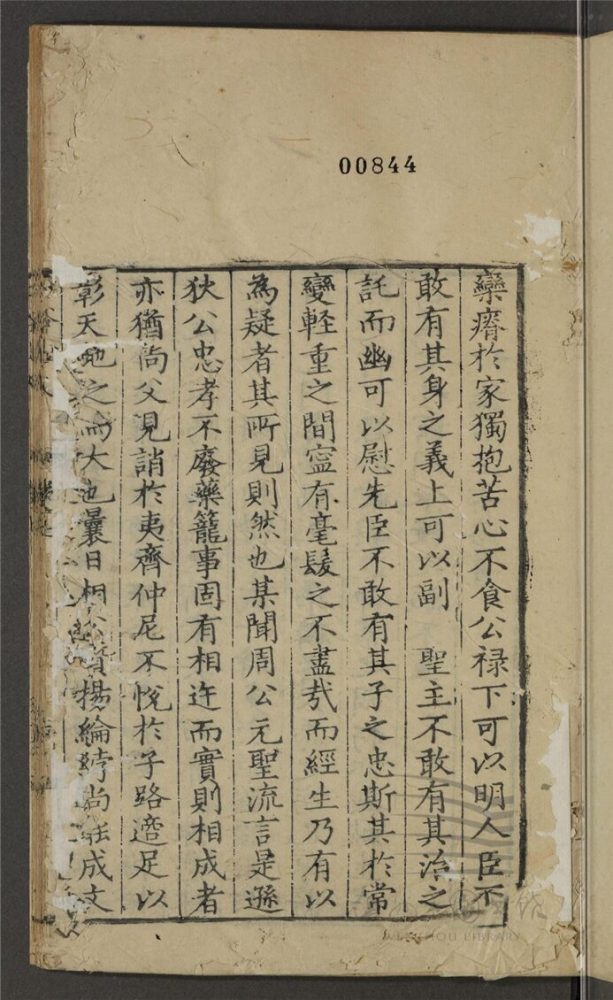 00844
欒瘠於家獨抱苦心不食公禄下可以明人臣不
敢有其身之義上可以副　聖主不敢有其治之
託而幽可以慰先臣不敢有其子之忠斯其於常
變輕重之間寍有毫髮之不盡㢤而經生乃有以
為疑者其所見則然也某聞周公元聖流言是遜
狄公忠孝不廢藥籠事固有相迕而實則相成者
亦猶尚父見誚於夷齊仲尼不悅於子路適足以
彰天地之大也曩日相揚綸綍尚成文
LIBRARY